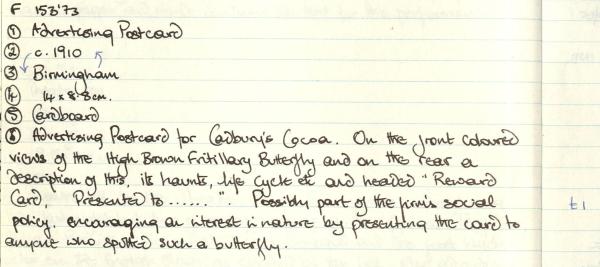 F 153'73
① Advertising Postcard
② c. 1910
③ Birmingham
④ 14 x 8.8cm.
⑤ Cardboard
⑥ Advertising Postcard for Cadbury's Cocoa. On the front coloured
views of the High Brown Fritillary Butterfly and on the rear a
description of this, its haunts, life cycle etc and headed "Reward
Card. Presented to ...... ". Possibly part of the firm's social
policy, encouraging an interest in nature by presenting the card to
anyone who spotted such a butterfly.
£1